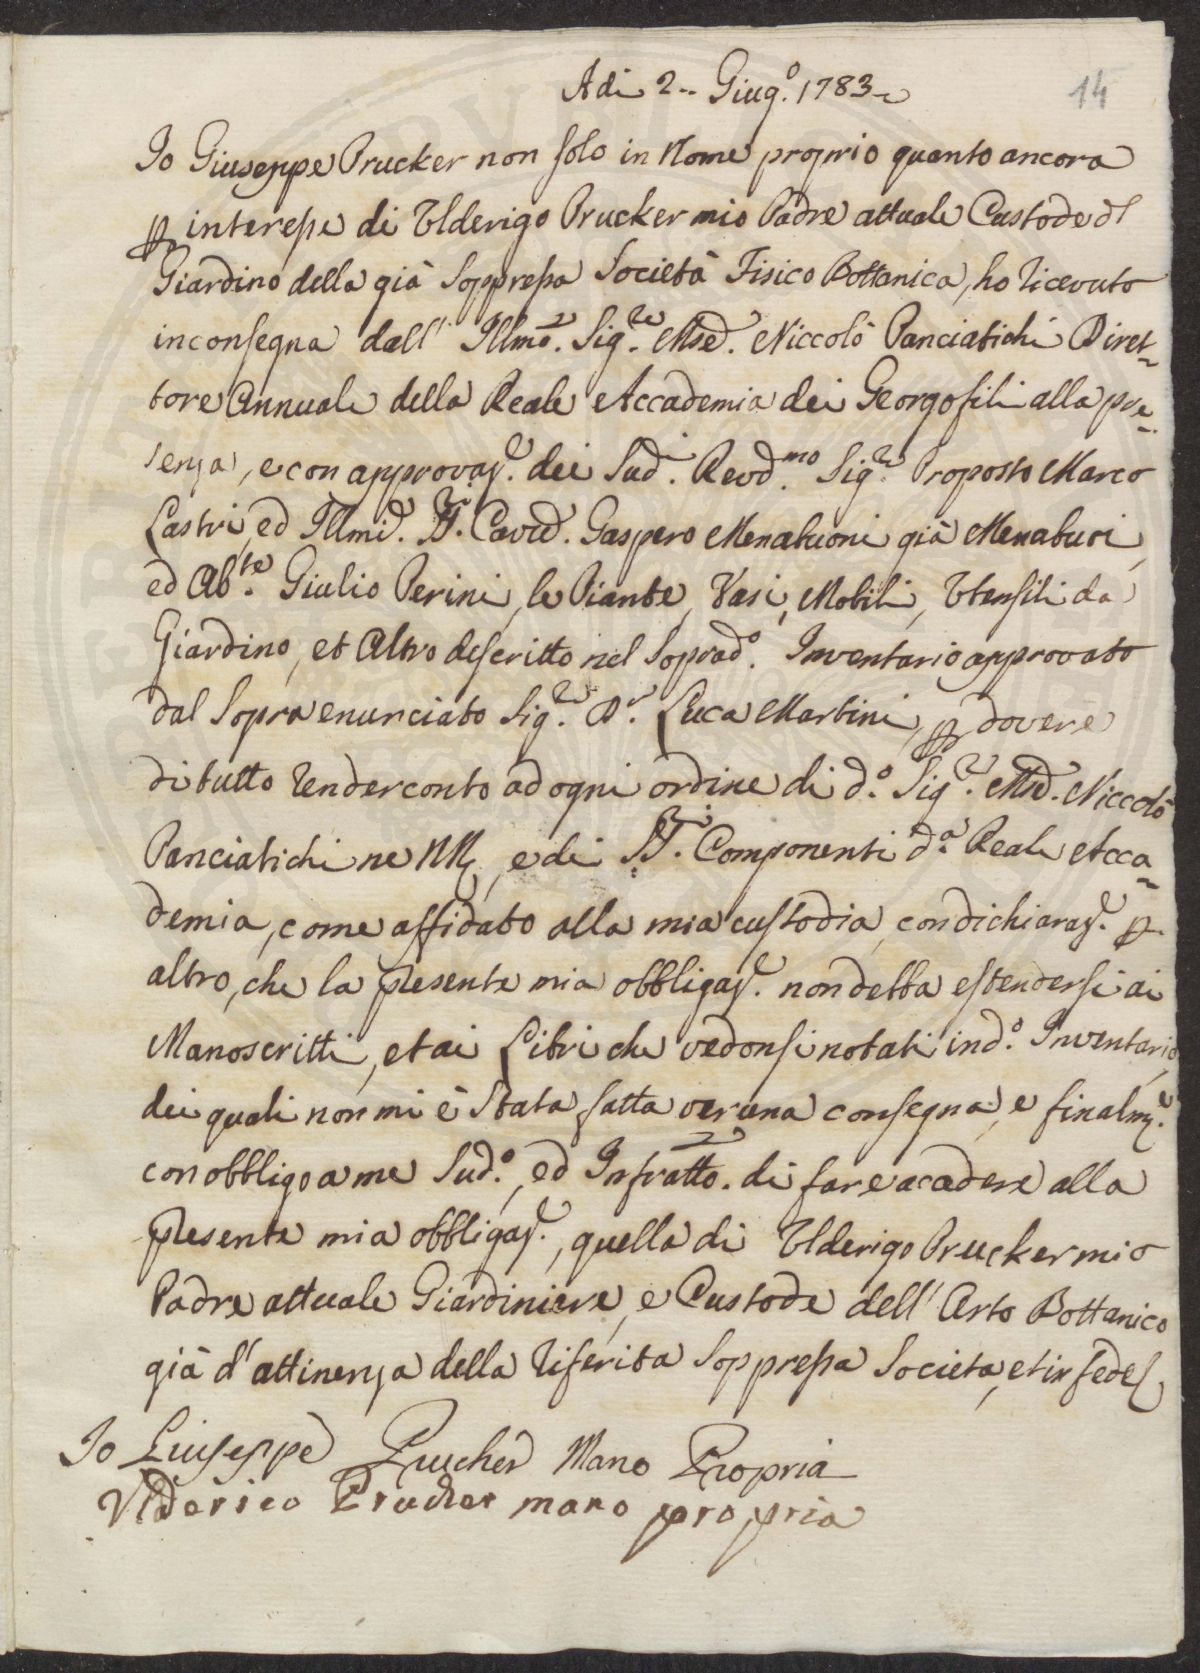 Adi 2.. Giug.º 1783
14
Io Giuseppe Prucker non solo in Nome proprio quanto ancora
p interesse di Ulderigo Prucker mio Padre attuale Custode dl
Giardino della già Soppressa Società Fisico Bottanica, ho ricevuto
in consegna dall' Illmo. Sig.re Niccolò Panciatichi Diret-
tore Annuale della Reale Accademia dei Georgofili alla pre-
senza, e con approvaz.e dei Sud.i Revd.mo Sig.re Proposto Marco
Lastri, ed Illmi. Gaspero Menabuoni già Menabuoi,
ed Ab.te Giulio Perini, le Piante, Vasi, Mobili, Utensili da
Giardino, et Altro descritto nel Soprad.º Inventario approvato
dal Sopra enunciato Sig.re D.r Luca Martini, p dovere
di tutto render conto ad ogni ordine di d.º Sig.re Niccolò
Panciatichi ne NN, e di SS.i Componenti d.a Reale Acca-
demia, come affidato alla mia custodia, con dichiaraz.e p.
altro, che la presente mia obbligaz.e non debba estendersi ai
Manoscritti, et ai Libri che vedonsi notati in d.º Inventario,
dei quali non mi è Stata fatta veruna consegna, e finalm.e
con obbligo a me Sud.º, ed Infratto. di fare accedere alla
presente mia obbligaz.e, quella di Ulderigo Prucker mio
Padre attuale Giardiniere, e Custode dell' Orto Bottanico
già d'attinenza della riferita Soppressa Societa, et in fede
Io Giuseppe Prucher Mano Propria
Vlderico Prucher mano propria